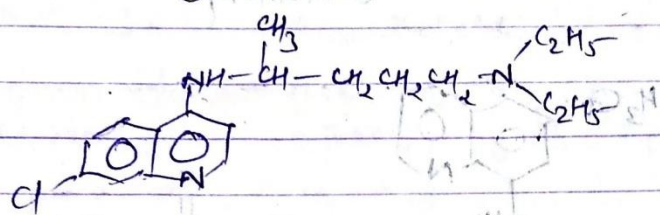 CH3
NH-CH-CH2CH2CH2-N
C2H5
C2H5
N
Cl